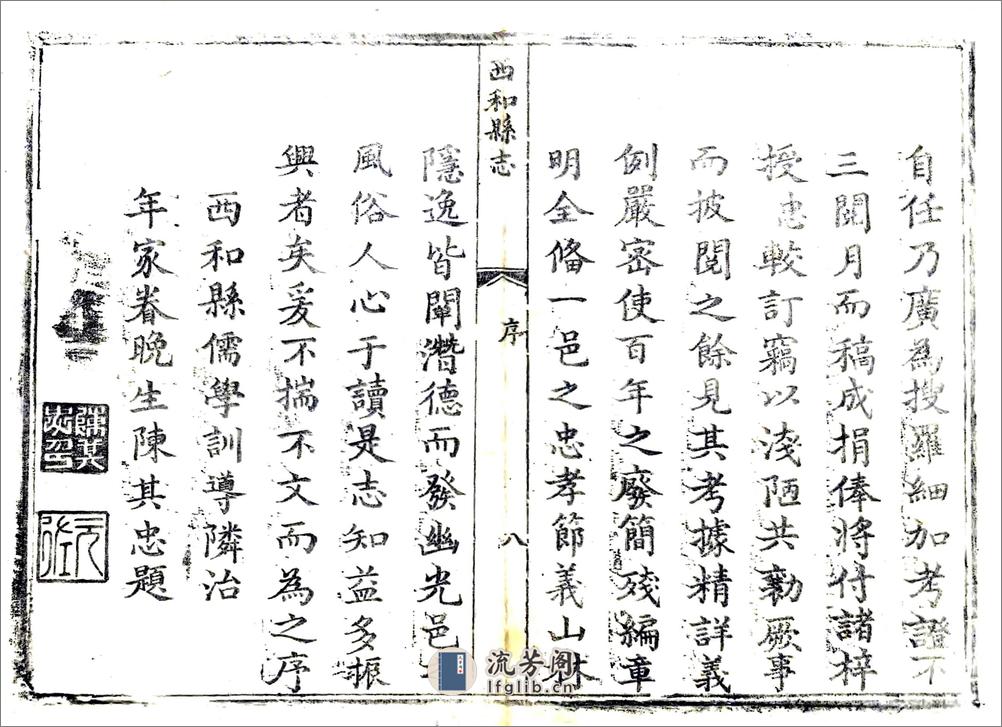 自任乃廣為搜羅細加考證不
三閱月而稿成捐俸將付諸梓
授忠較訂竊以淺陋共勷厥事
而披閱之餘見其考據精詳義
例嚴密使百年之廢簡殘編章
明全俻一邑之忠孝節義山林
西和縣志
序
八
隱逸皆闡潛德而發幽光邑
風俗人心于讀是志知益多振
興者矣爰不揣不文而為之序
西和縣儒學訓導隣治
年家眷晚生陳其忠題
陳其忠印
流芳阁
lfglib.cn